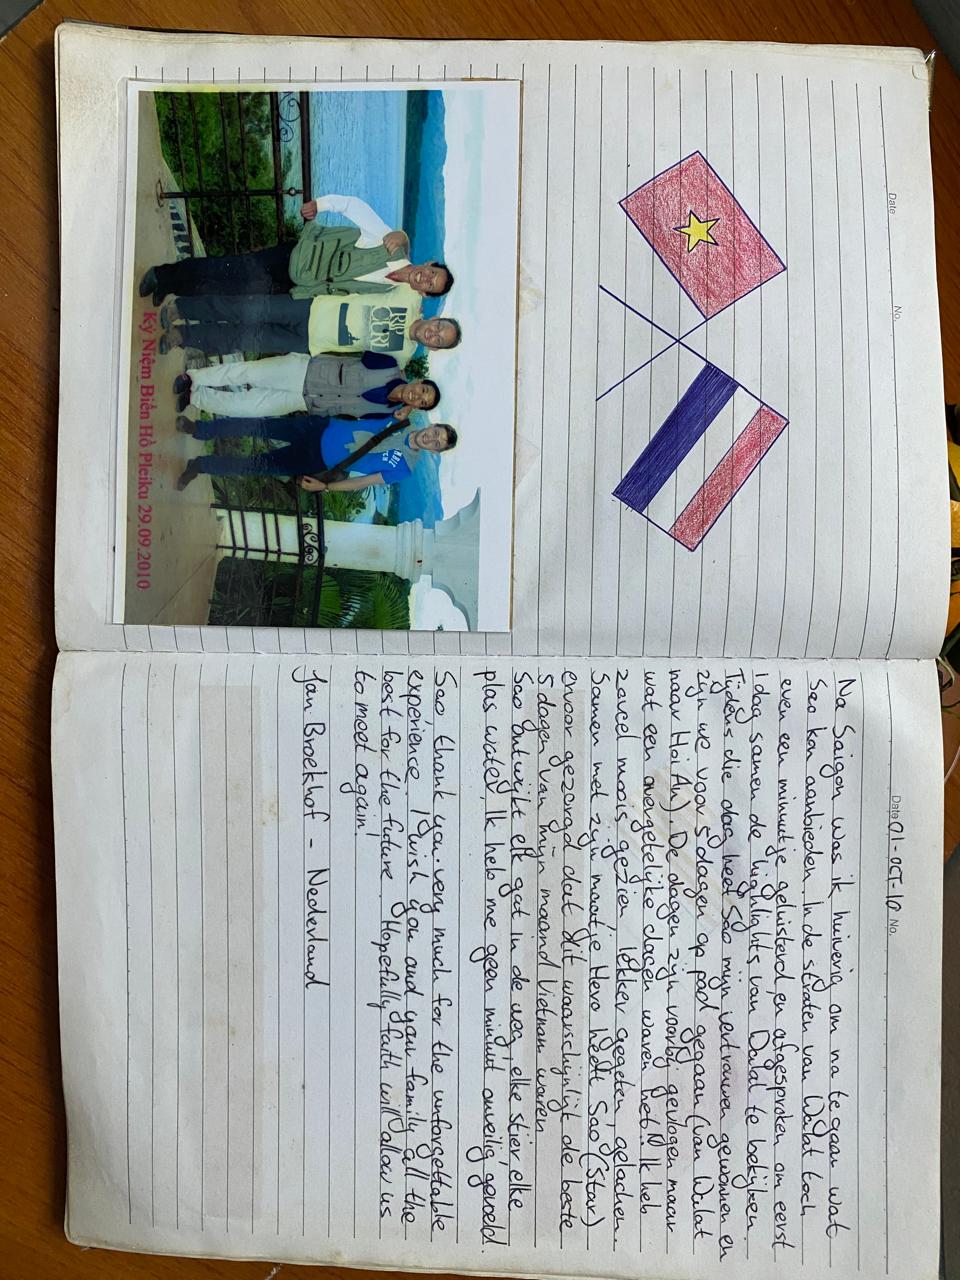 Date
No.
TRIP
CURL
Kỷ Niệm Biển Hồ Pleiku 29.09.2010
Date 01-OCT-10 No.
Na Saigon was ik huiverig om na te gaan wat
Sao kon aanbieden. In de straten van Dalat toch
even een minuutje geluisterd en afgesproken om eerst
1 dag samen de highlights van Dalat te bekijken.
Tijdens die dag heeft Sao mijn vertrouwen gewonnen en
zijn we voor 5 dagen op pad gegaan (van Dalat
naar Hoi An). De dagen zijn voorbij gevlogen maar
wat een onvergetelijke dagen waren het!! Ik heb
zoveel moois gezien, lekker gegeten, gelachen..
Samen met zijn maatje Hero heeft Sao (Star)
ervoor gezorgd dat dit waarschijnlijk de beste
5 dagen van mijn maand Vietnam waren.
Sao ontwijkt elk gat in de weg, elke stier, elke
plas water, ik heb me geen minuut onveilig gevoeld.
Sao thank you very much for the unforgettable
experience. I wish you and your family all the
best for the future. Hopefully faith will allow us
to meet again!
Jan Broekhof - Nederland